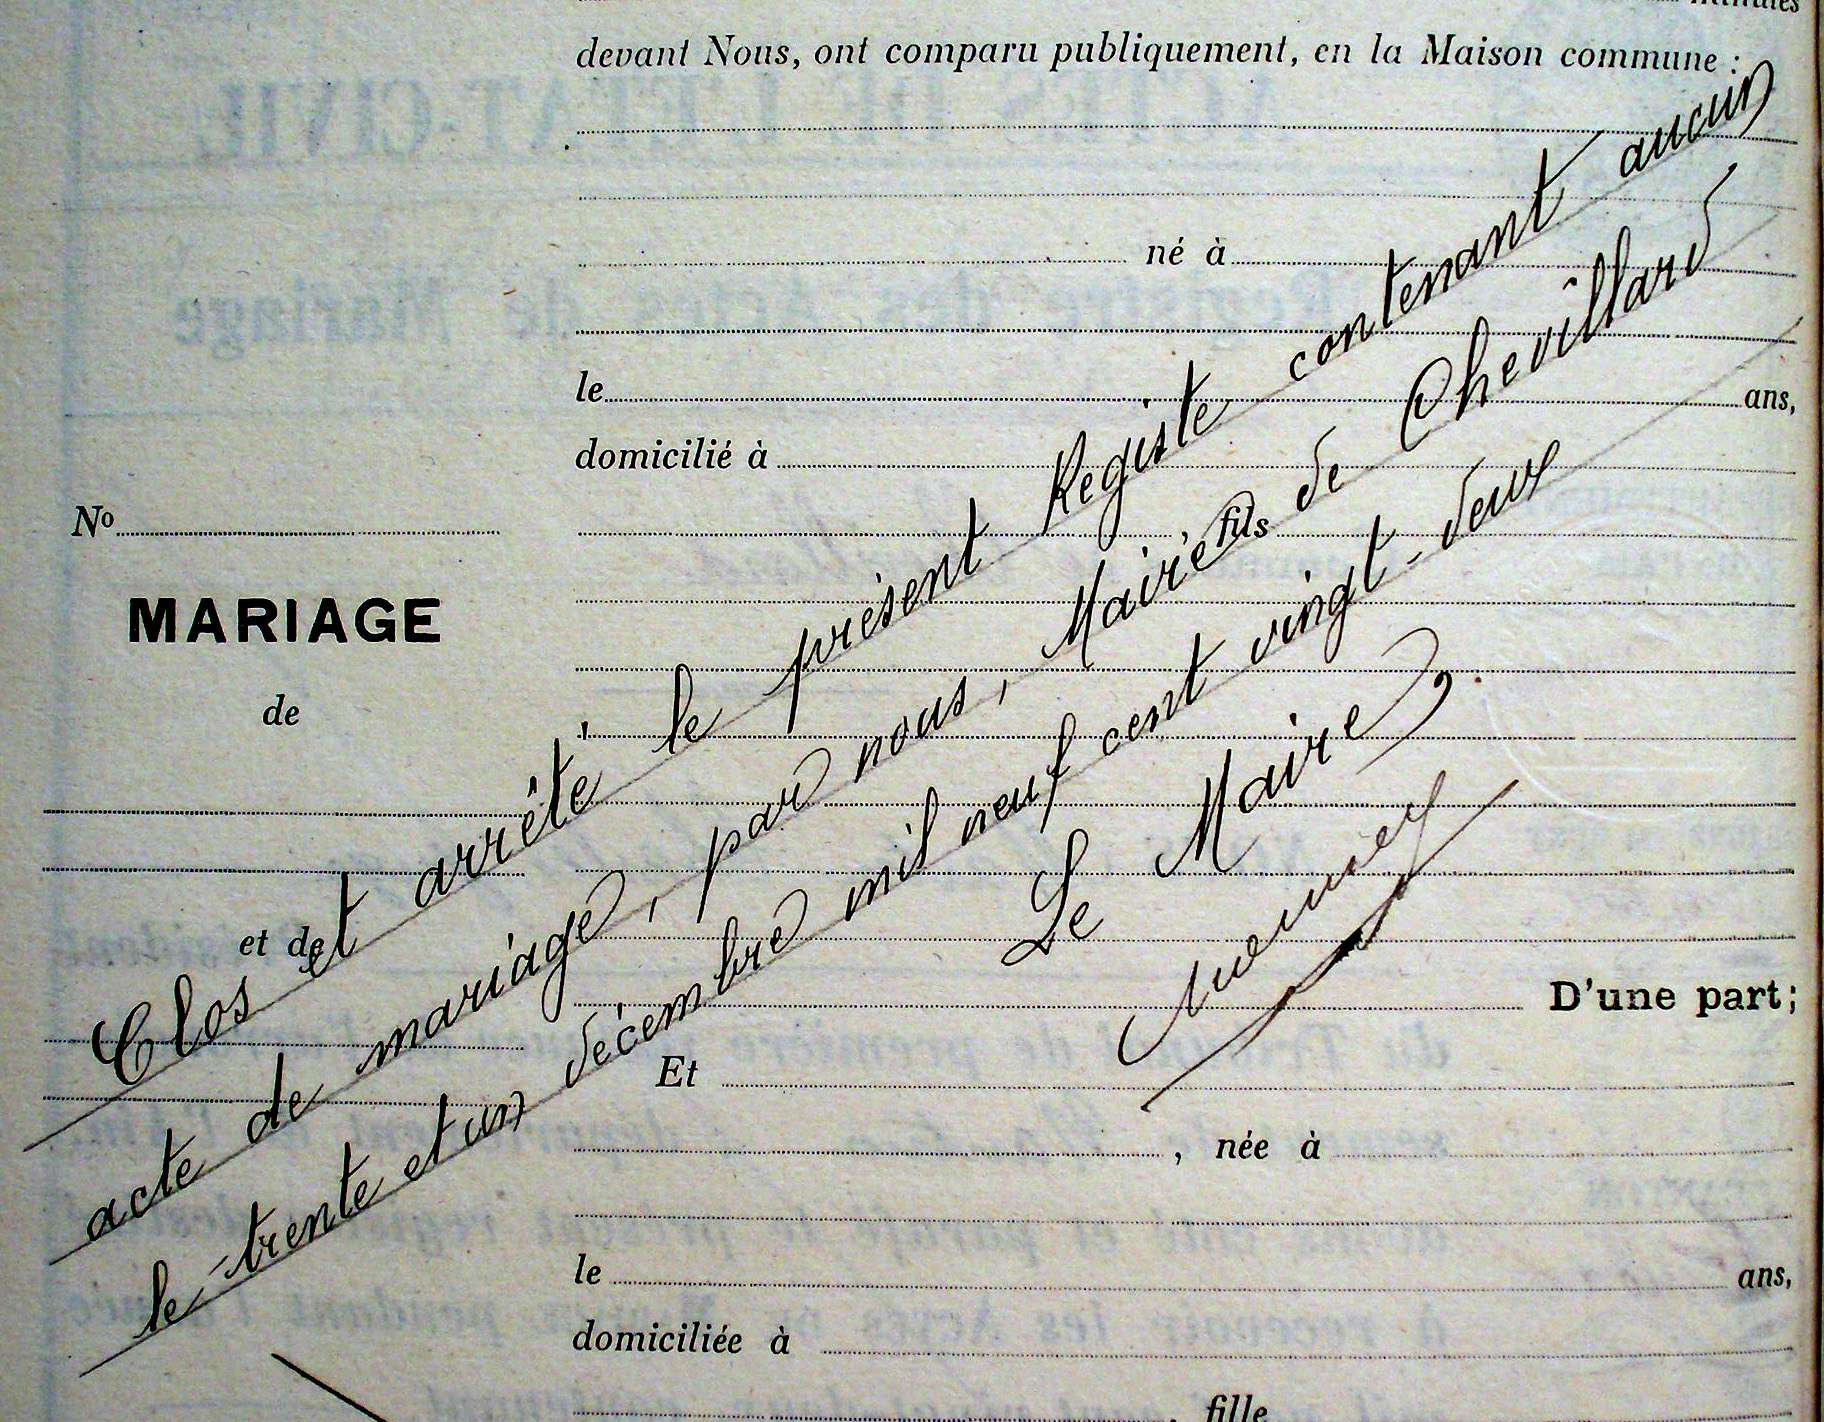 minutes
devant Nous, ont comparu publiquement, en la Maison commune :
né à
le ans,
domicilié à
fils
No
MARIAGE
de
et de
D'une part;
Et
, née à
le ans,
domiciliée à
, fille
Clos et arrêté le présent Registe contenant aucun
acte de mariage, par nous, Maire de Chevillard
le trente et un décembre mil neuf cent vingt-deux
Le Maire